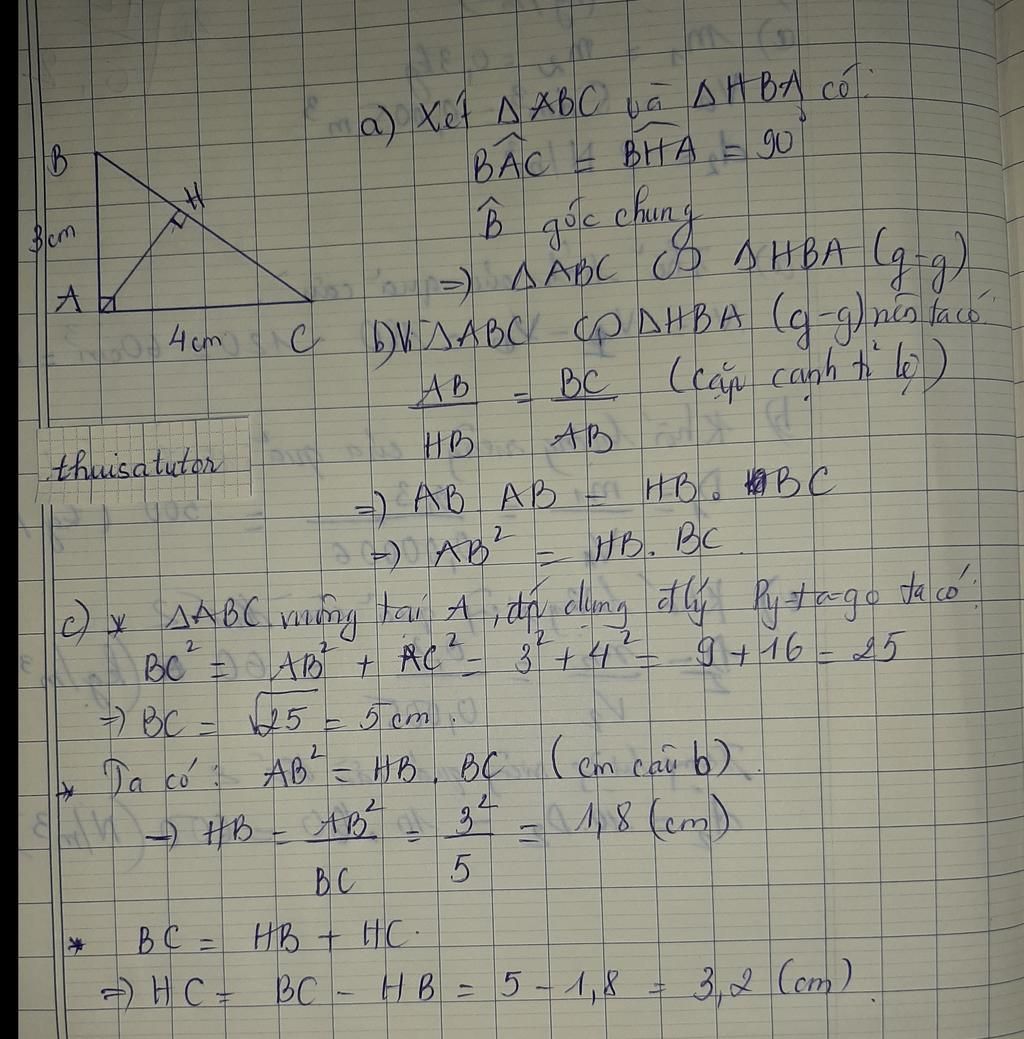 a) Xét ΔABC và ΔHBA có:
B
H
BAC^ = BHA^ = 90
3cm
B^ góc chung
A
=> ΔABC ∽ ΔHBA (g-g)
4cm C
b) Vì ΔABC ∽ ΔHBA (g-g) nên ta có:
AB/HB = BC/AB (cặp cạnh tỉ lệ)
thuisatutor
=> AB AB = HB. BC
=> AB² = HB. BC.
c) * ΔABC vuông tại A, áp dụng đlý Py-ta-go ta có:
BC² = AB² + AC² = 3² + 4² = 9 + 16 = 25
=> BC = √25 = 5 cm.
* Ta có: AB² = HB. BC (cm câu b).
=> HB = AB²/BC = 3²/5 = 1,8 (cm)
* BC = HB + HC.
=> HC = BC - HB = 5 - 1,8 = 3,2 (cm).